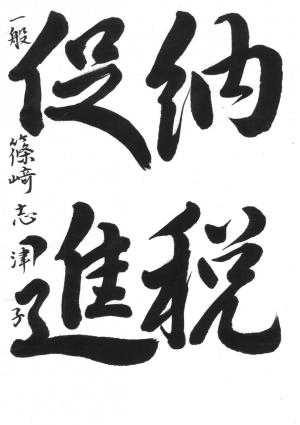 納税
促進
一般 篠﨑志津子